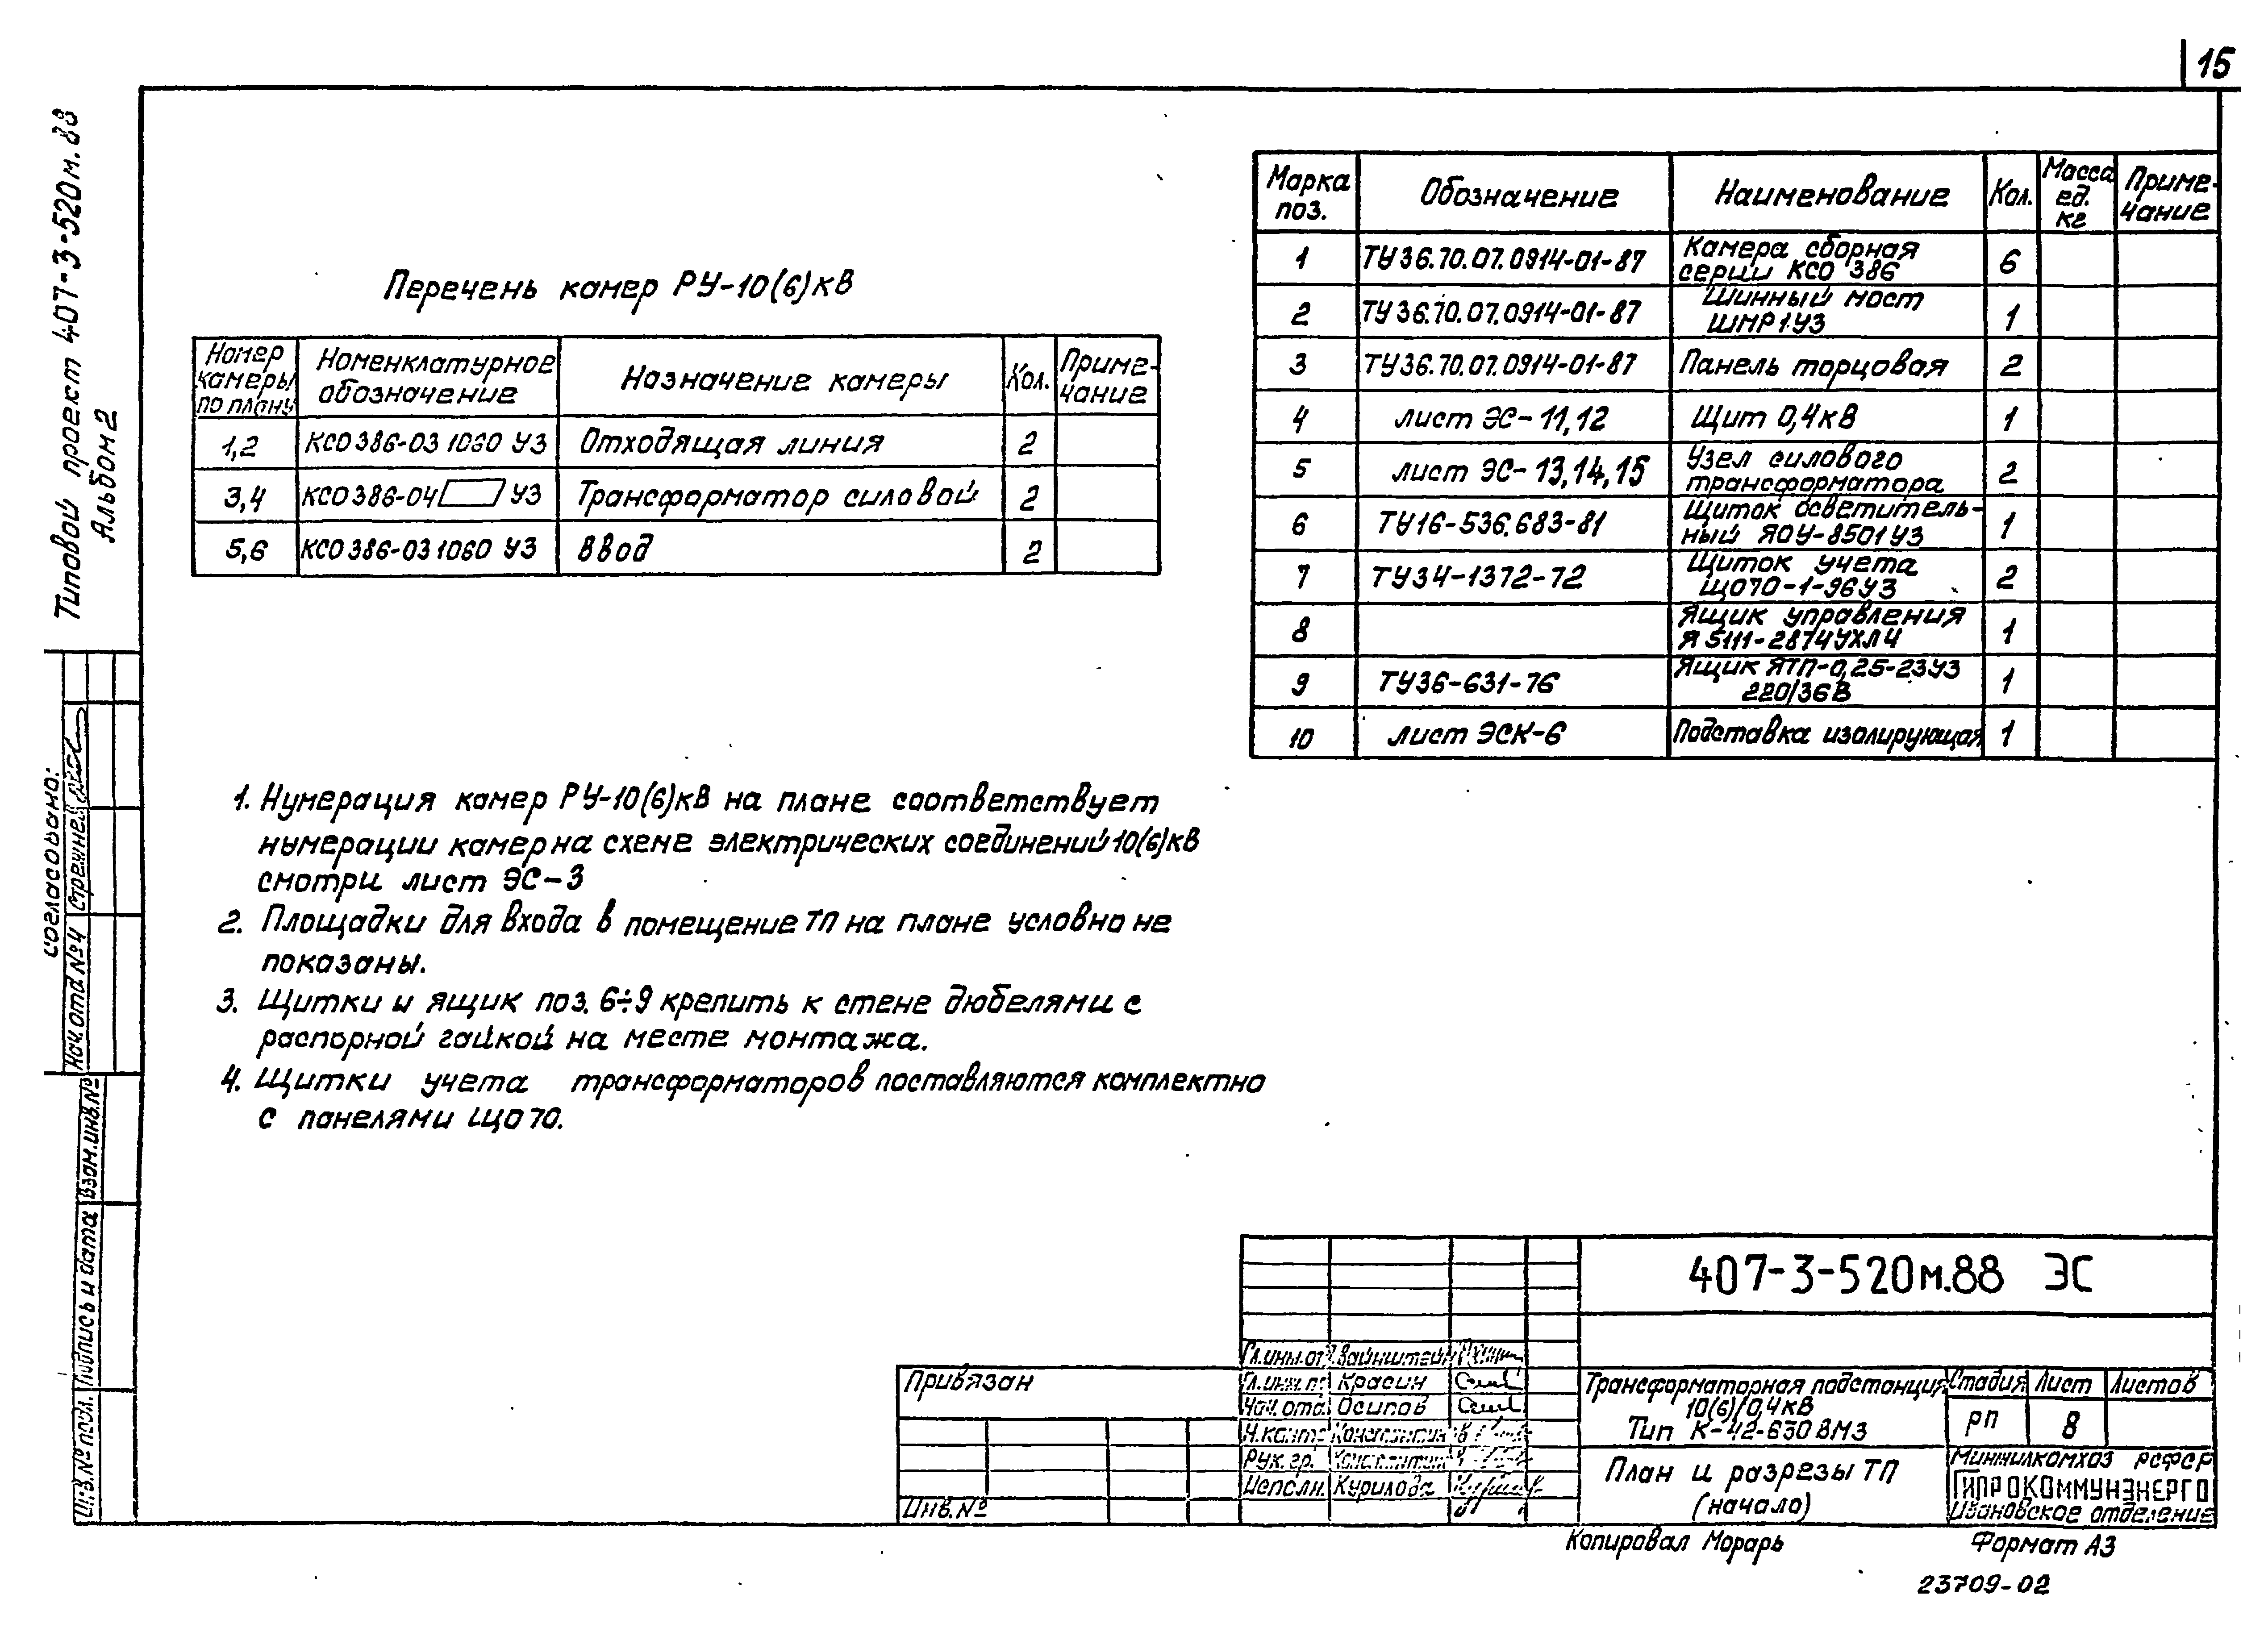 15
Типовой проект 407-3-520м.88
Альбом 2
Перечень камер РУ-10(6)кВ
Номер камеры по плану
Номенклатурное обозначение
Назначение камеры
Кол.
Примечание
1,2 КСО386-03 1060 У3 Отходящая линия 2
3,4 КСО386-04 У3 Трансформатор силовой 2
5,6 КСО386-03 1060 У3 Ввод 2
Марка поз.
Обозначение
Наименование
Кол.
Масса ед. кг
Приме-
чание
1 ТУ36.70.07.0914-01-87 Камера сборная
серии КСО 386 6
2 ТУ36.70.07.0914-01-87 Шинный мост
ШМР1-У3 1
3 ТУ36.70.07.0914-01-87 Панель торцовая 2
4 лист ЭС-11,12 Щит 0,4кВ 1
5 лист ЭС-13,14,15 Узел силового
трансформатора 2
6 ТУ16-536.683-81 Щиток осветитель-
ный ЯОУ-8501У3 1
7 ТУ34-1372-72 Щиток учета
ЩО70-1-96У3 2
8 Ящик управления
Я5111-2874УХЛ4 1
9 ТУ36-631-76 Ящик ЯТП-0,25-23У3
220/36В 1
10 лист ЭСК-6 Подставка изолирующая 1
1. Нумерация камер РУ-10(6)кВ на плане соответствует
нумерации камер на схеме электрических соединений 10(6)кВ
смотри лист ЭС-3
2. Площадки для входа в помещение ТП на плане условно не
показаны.
3. Щитки и ящик поз. 6÷9 крепить к стене дюбелями с
распорной гайкой на месте монтажа.
4. Щитки учета трансформаторов поставляются комплектно
с панелями ЩО70.
Согласовано:
Нач. отд №4
Взам.инв.№
Подпись и дата
Инв.№ подл.
407-3-520м.88 ЭС
Привязан
Инв.№
Вайнштейн
Гл.инж.пр Красин
Нач. отд. Осипов
Н.контр Константинов
Рук. гр. Константинов
Исполн. Курилова
Трансформаторная подстанция
10(6)/0,4кВ
Тип К-42-630ВМ3
Стадия Лист Листов
РП 8
План и разрезы ТП
(начало)
Минжилкомхоз РСФСР
ГИПРОКОММУНЭНЕРГО
Ивановское отделение
Копировал Морарь
Формат А3
23709-02